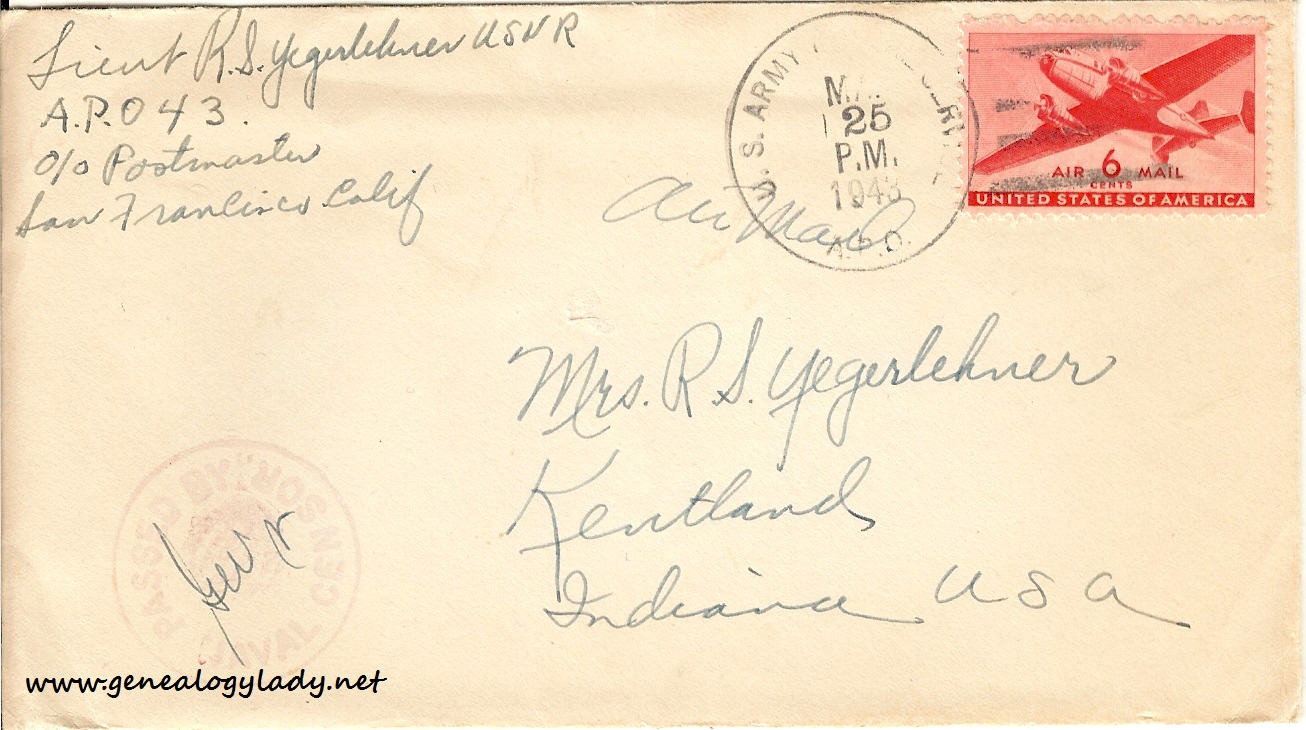 Lieut R.S. Yegerlehner USNR
A.P.O 43.
c/o Postmaster
San Francisco. Calif
Air Mail
U.S. ARMY
25
P.M.
1943
A.P.O.
AIR 6 MAIL
CENTS
UNITED STATES OF AMERICA
Mrs. R. S. Yegerlehner
Kentland
Indiana USA
PASSED BY NAVAL CENSOR
www.genealogylady.net